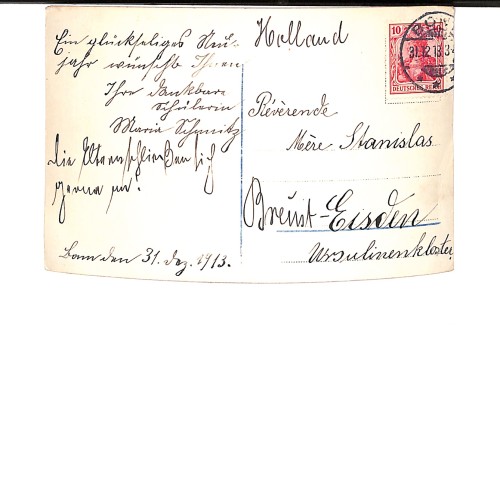 Ein glückseliges Neu-
jahr wünscht Ihnen
Ihre dankbare
Schülerin
Maria Schmitz
die Eltern schließen sich
gerne an!
Bonn den 31. Dez. 1913.
Holland
Révèrende
Mère Stanislas
Breust-Eisden
Ursulinenkloster
10
DEUTSCHES REICH
31.12.13.3-